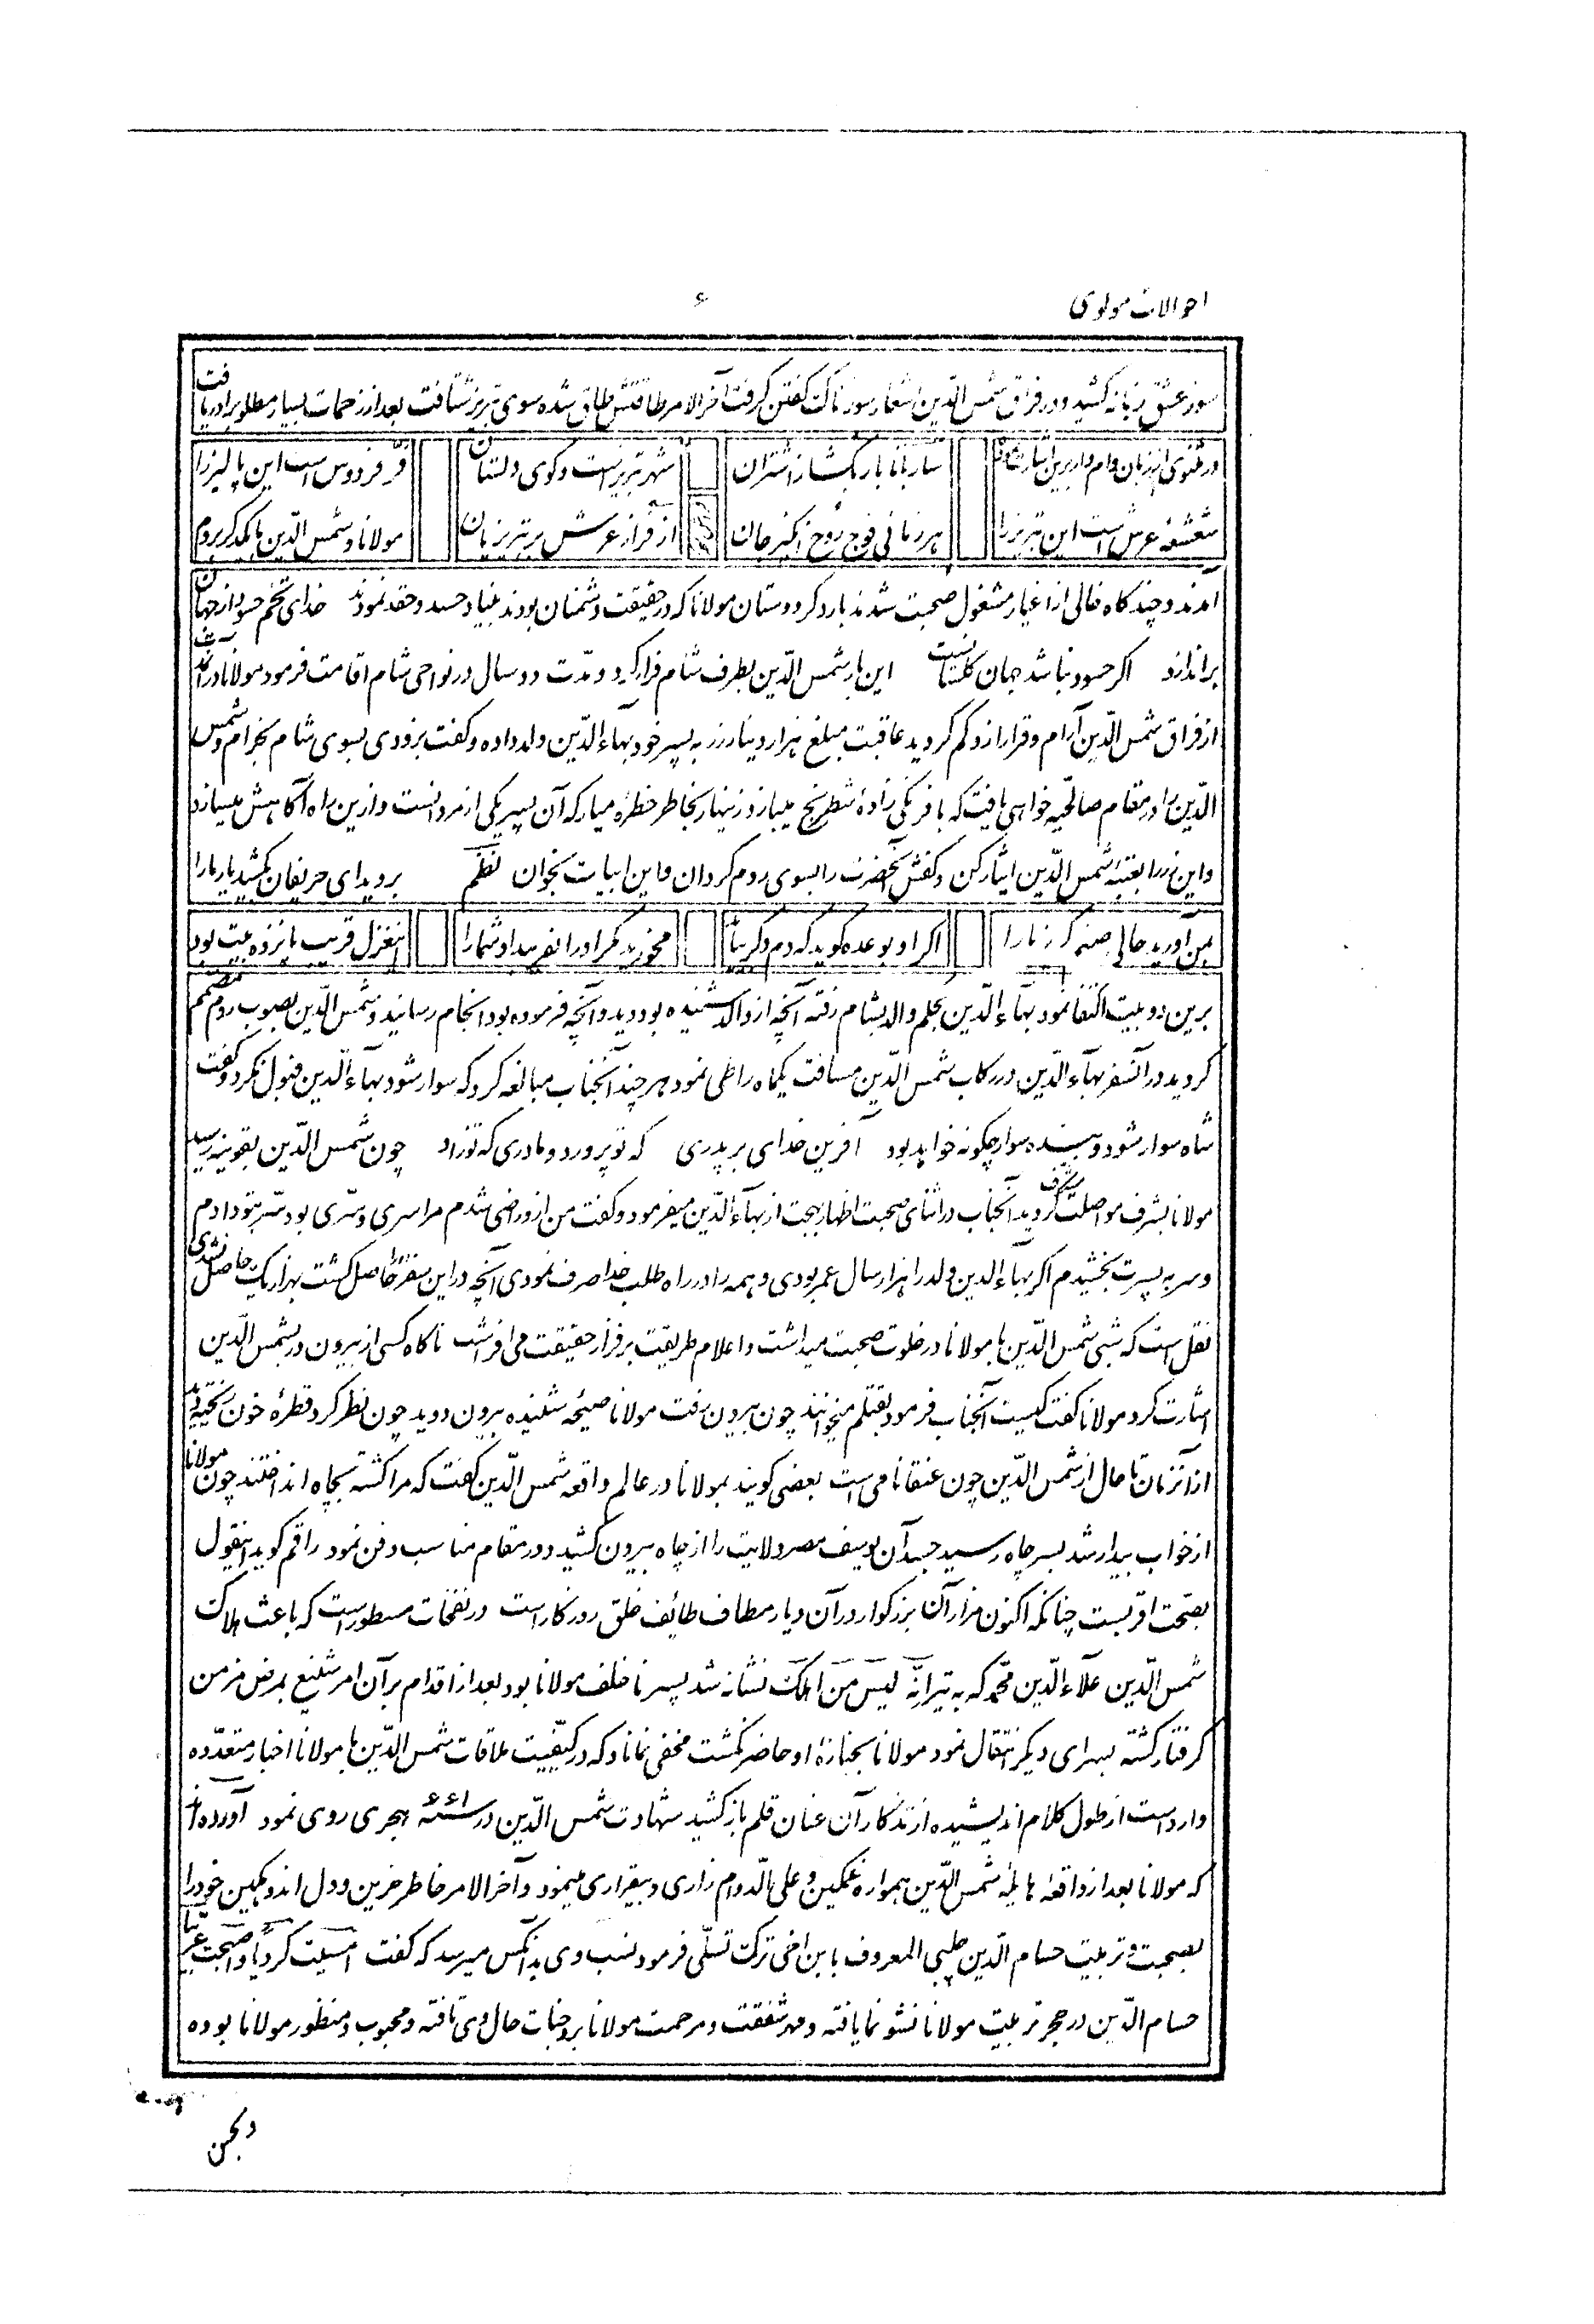 احوالات مولوی
۶
سوز عشق زبانه کشید و در فراق شمس الدّین اشعار سوزناک گفتن گرفت آخر الامر طاقتش طاق شده سوی تبریز شتافت بعد از زحمات بسیار مطلوبرا دریافت
ساربانا بار بگشا ز اشتران شهر تبریز است و کوی دلستان فرّ فردوس است این پالیز را
شعشعه عرش است این تبریز را هر زمانی فوج روح انگیز جان از فراز عرش بر تبریزیان مولانا و شمس الدّین با یکدیگر بروم
آمدند و چند گاه خالی از اغیار مشغول صحبت شدند بار دگر دوستان مولانا که در حقیقت دشمنان بودند بنیاد حسد و حقد نمودند خدای تخم حسود از جهان
براندازد اگر حسود نباشد جهان گلستانست این بار شمس الدّین بطرف شام فرار کرد و مدّت دو سال در نواحی شام اقامت فرمود مولانا را
از فراق شمس الدّین آرام و قرار ازو گم گردید عاقبت مبلغ هزار دینار زر به پسر خود بهاء الدّین ولد داده و گفت بزودی بسوی شام بخرام و شمس
الدّین را در مقام صالحیّه خواهی یافت که با فرنگی زادهٔ شطرنج میبازد زنهار بخاطر خطره میار که آن پسر یکی از مردانست و ازین راه آگاهش میسازد
و این زر را بعتبهٔ شمس الدّین ایثار کن و کفش آنحضرت را بسوی روم گردان و این ابیات بخوان نظم بروید ای حریفان بکشید یار ما را
بمن آورید حالی صنم گریزپا را اگر او بوعده گوید که دم دگر بیاید مخورید مکر او را بفریبد او شما را اینغزل قریب پانزده بیت بود
برین دو بیت اکتفا نمود بهاء الدّین بحکم والد بشام رفته آنچه از والد شنیده بود دید و آنچه فرموده بود انجام رسانید و شمس الدّین بصوب روم مصمّم
گردید در آنسفر بهاء الدّین در رکاب شمس الدّین مسافت یکماه راه طی نمود هر چند آنجناب مبالغه کرد که سوار شود بهاء الدّین قبول نکرد و گفت
شاه سوار شود و بنده سوار چگونه خواهد بود آفرین خدای بر پدری که تو پرورد و مادری که تو زاد چون شمس الدّین بقونیه رسید
مولانا بشرف مواصلت مشرّف گردید آنجناب در اثنای صحبت اظهار بهجت از بهاء الدّین میفرمود و گفت من ازو راضی شدم مرا سری و سرّی بود سرّ بتو دادم
و سر به پسرت بخشیدم اگر بهاء الدین ولد را هزار سال عمر بودی و همه را در راه طلب خدا صرف نمودی آنچه در این سفر حاصل گشت بهزار یک حاصل نشدی
نقل است که شبی شمس الدّین با مولانا در خلوت صحبت میداشت و اعلام طریقت بر فراز حقیقت می‌افراشت ناگاه کسی از بیرون در بشمس الدّین
اشارت کرد مولانا گفت کیست آنجناب فرمود بقتلم میخوانند چون بیرون رفت مولانا صیحه شنیده بیرون دوید چون نظر کرد قطرهٔ خون ریخته دید
از آنزمان تا حال از شمس الدّین چون عنقا نامی است بعضی گویند بمولانا در عالم واقعه شمس الدّین گفت که مرا کشته بچاه انداختند چون مولانا
از خواب بیدار شد بسر چاه رسید جسد آن یوسف مصر ولایت را از چاه بیرون کشید و در مقام مناسب دفن نمود راقم گوید اینقول
بصحّت اقربست چنانکه اکنون مزار آن بزرگوار در آن دیار مطاف طائف خلق روزگار است در نفحات مسطور است که باعث هلاک
شمس الدّین علاء الدّین محمّد که به تیر انَّه لیس من اهلک نشانه شد پسر ناخلف مولانا بود بعد از اقدام بر آن امر شنیع بمرض مزمن
گرفتار گشته بسرای دیگر انتقال نمود مولانا بجنازهٔ او حاضر نگشت مخفی نماناد که در کیفیّت ملاقات شمس الدّین با مولانا اخبار متعدّده
وارد است از طول کلام اندیشیده از تذکار آن عنان قلم باز کشید شهادت شمس الدّین در سنه ۶۶۱ هجری روی نمود آورده‌اند
که مولانا بعد از واقعهٔ هایلهٔ شمس الدّین همواره غمگین و علی الدّوام زاری و بیقراری مینمود و آخر الامر خاطر حزین و دل اندوهگین خود را
بصحبت و تربیت حسام الدّین چلبی المعروف بابن اخی ترک تسلّی فرمود نسب وی بدانکس میرسد که گفت امسیت کردیّاً و اصبحت عربیّاً
حسام الدّین در حجر تربیت مولانا نشو نما یافته و مهر شفقت و مرحمت مولانا بر وجنات حال وی تافته و محبوب و منظور مولانا بوده